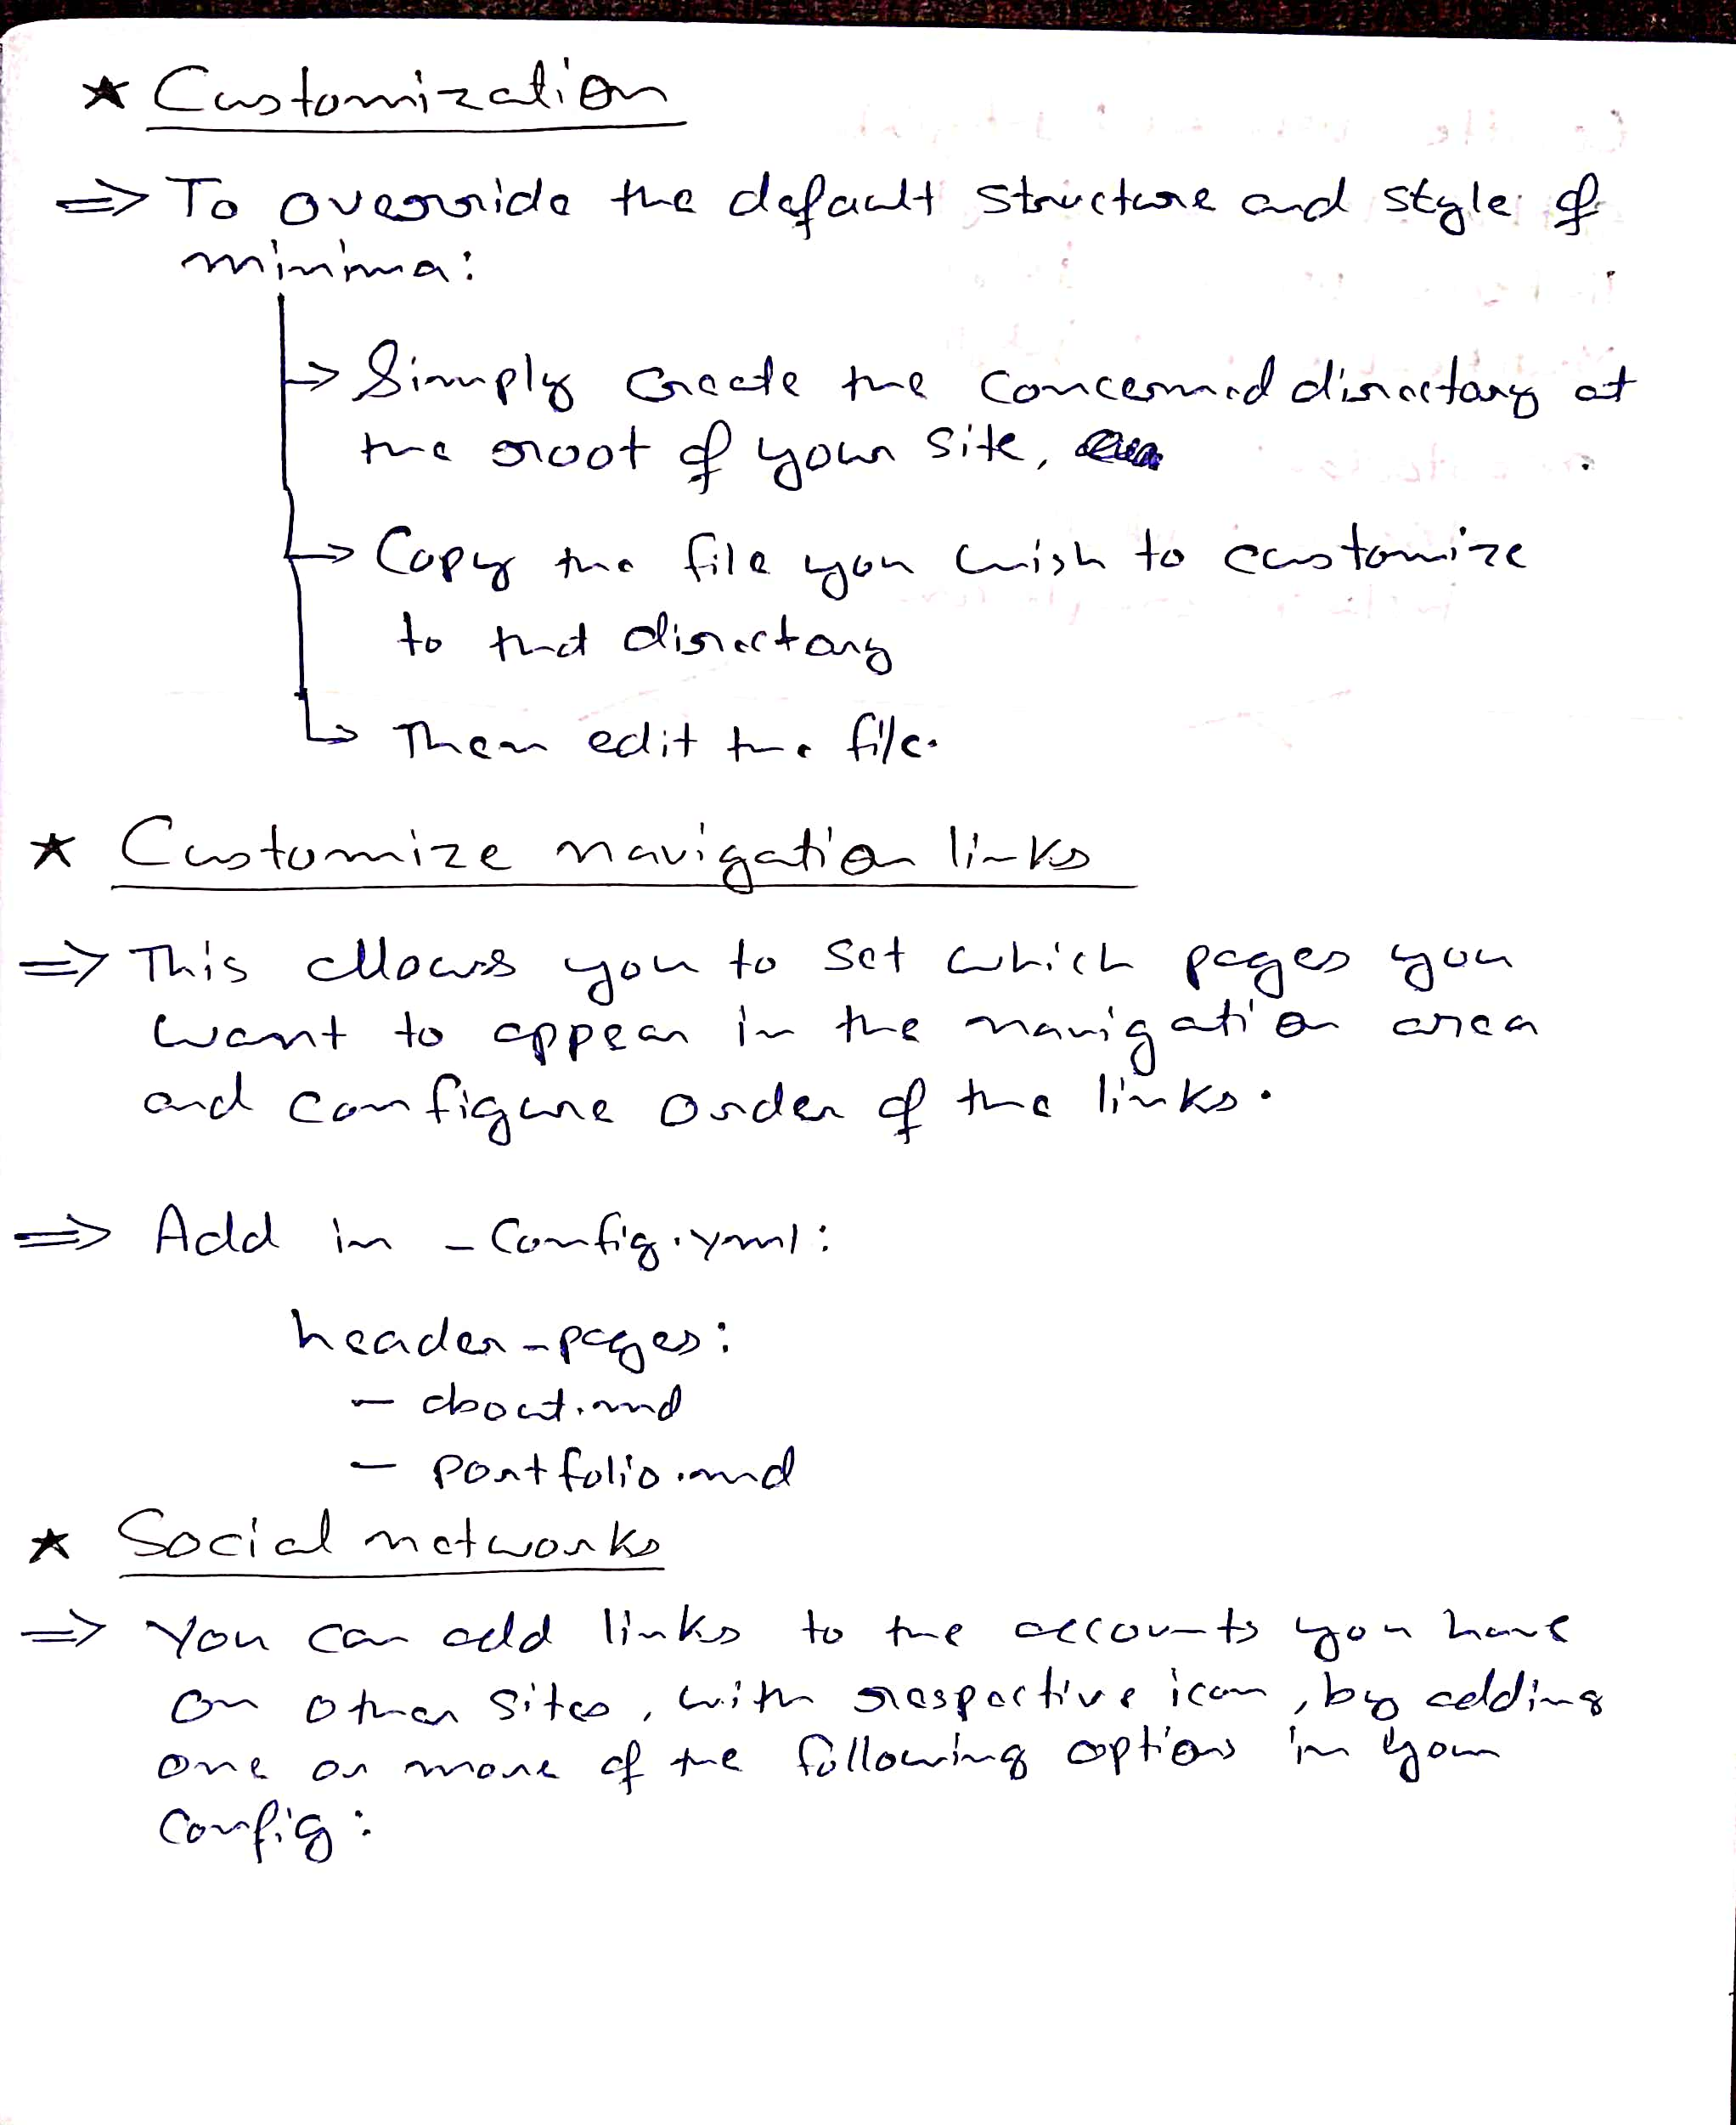 ★ Customization
⇒ To override the default structure and style of
minima:
→ Simply create the concerned directory at
the root of your site,
→ Copy the file you wish to customize
to that directory
↳ Then edit the file.
★ Customize navigation links
⇒ This allows you to set which pages you
want to appear in the navigation area
and configure order of the links.
⇒ Add in _config.yml:
header_pages:
- about.md
- portfolio.md
★ Social networks
⇒ You can add links to the accounts you have
on other sites, with respective icon, by adding
one or more of the following options in your
config: